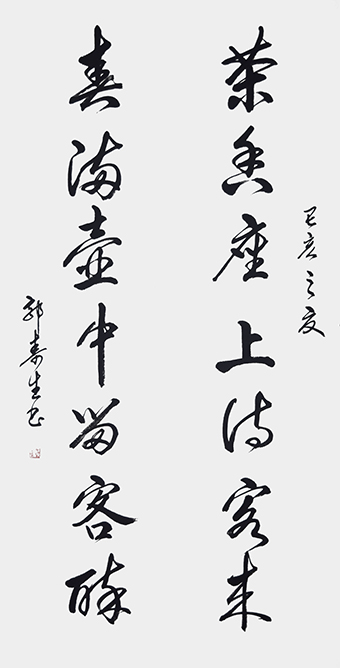 己亥之夏
茶香座上待客来
春满壶中留客醉
郭寿生书